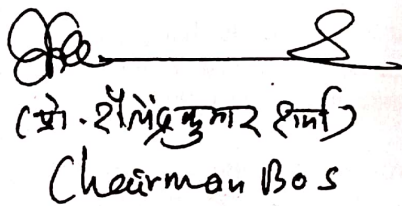 (प्रो. शैलेंद्रकुमार शर्मा)
Chairman BoS